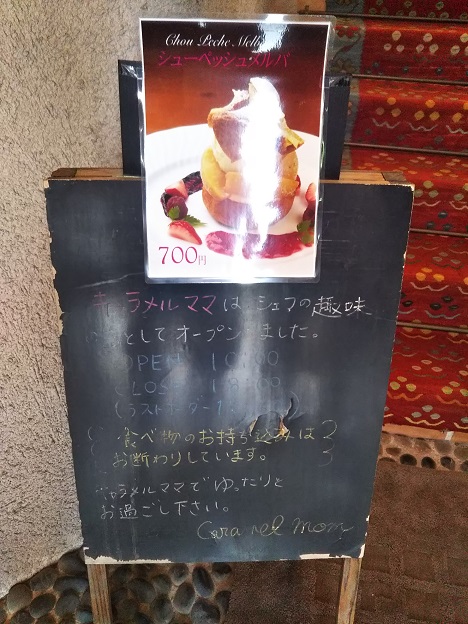 Chou Peche Mel
シューペッシュメルバ
700円
キャラメルママは、シェフの趣味、
としてオープンしました。
OPEN 10:00
CLOSE
(ラストオーダー
食べ物のお持ち込みは
お断わりしています。
キャラメルママでゆったりと
お過ごし下さい。
Caramel mom